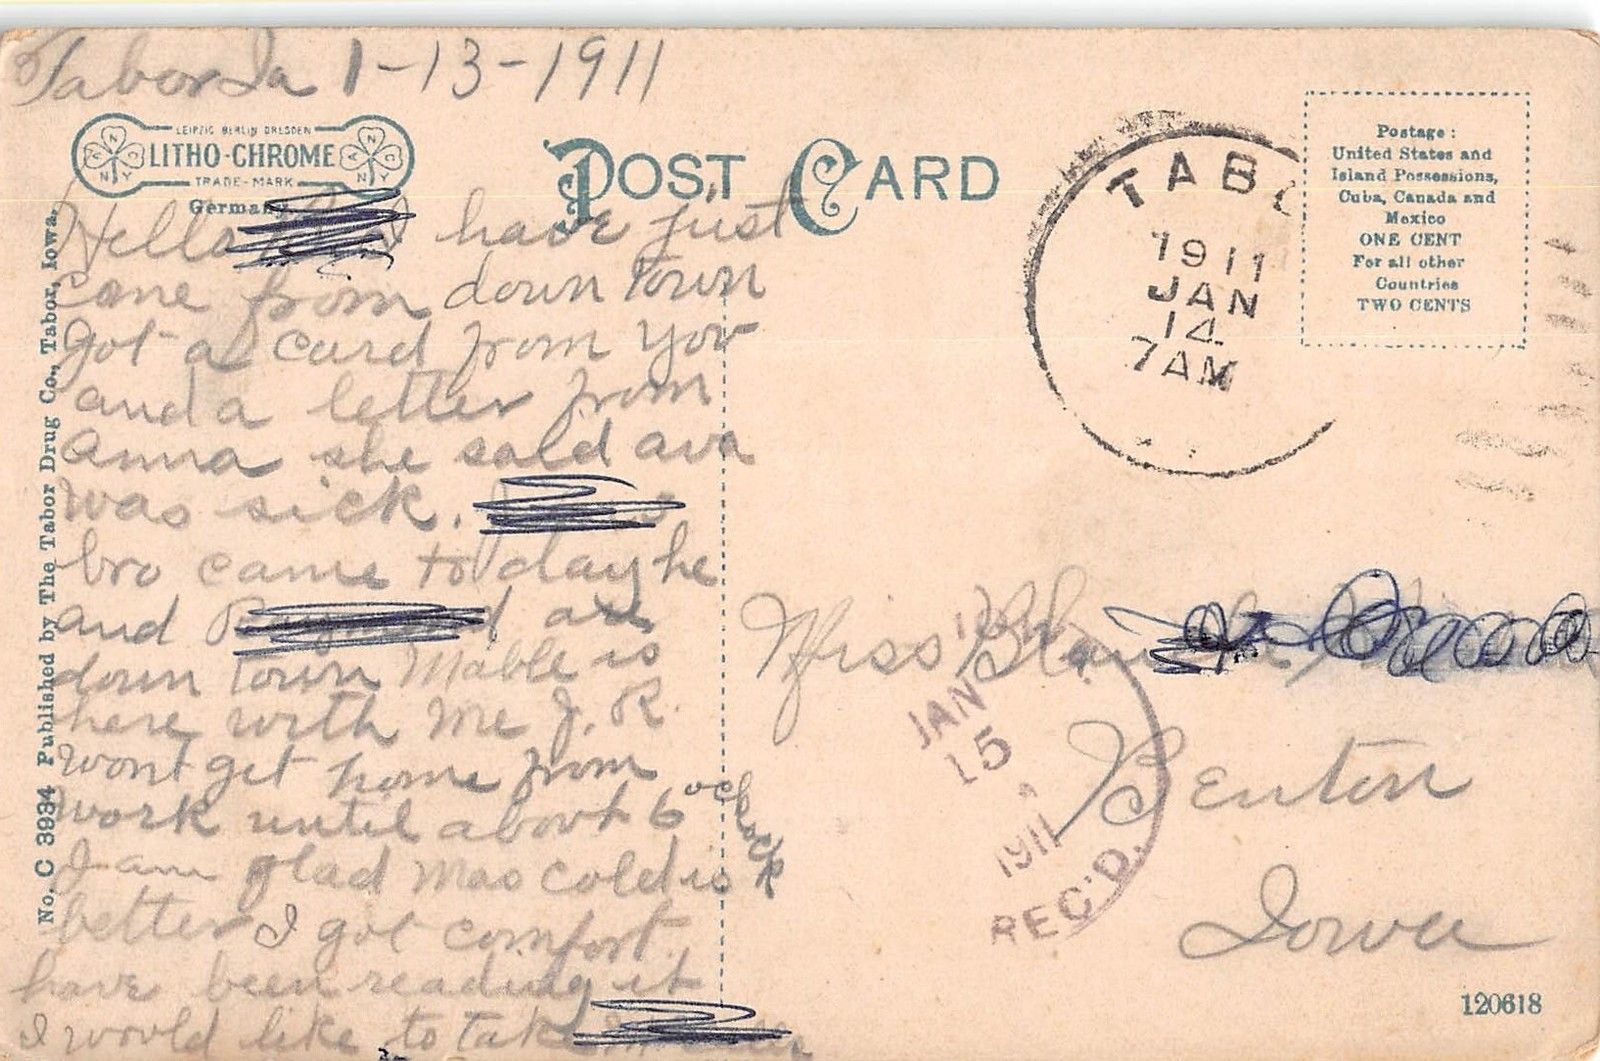 Tabor Ia 1-13-1911
LEIPZIG BERLIN DRESDEN
LITHO-CHROME
TRADE-MARK
Germany
POST CARD
TABO
1911
JAN
14
7AM
Postage:
United States and
Island Possessions,
Cuba, Canada and
Mexico
ONE CENT
For all other
Countries
TWO CENTS
No. C 3934 Published by The Tabor Drug Co., Tabor, Iowa.
Hello I have just
came from down town
got a card from you
and a letter from
Anna she said ava
was sick.
bro came to day he
and are
down town Mable is
here with me J. R.
wont get home from
work until about 6 ock ock
I am glad Mas cold is
better I got comfort
have been reading it
I would like to take
Miss
Benton
Iowa
JAN
15
1911
REC'D.
120618